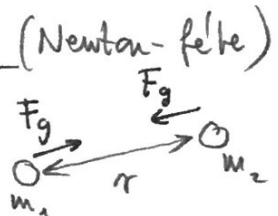 (Newton-féle)
Fg
Fg
m₁
r
m₂